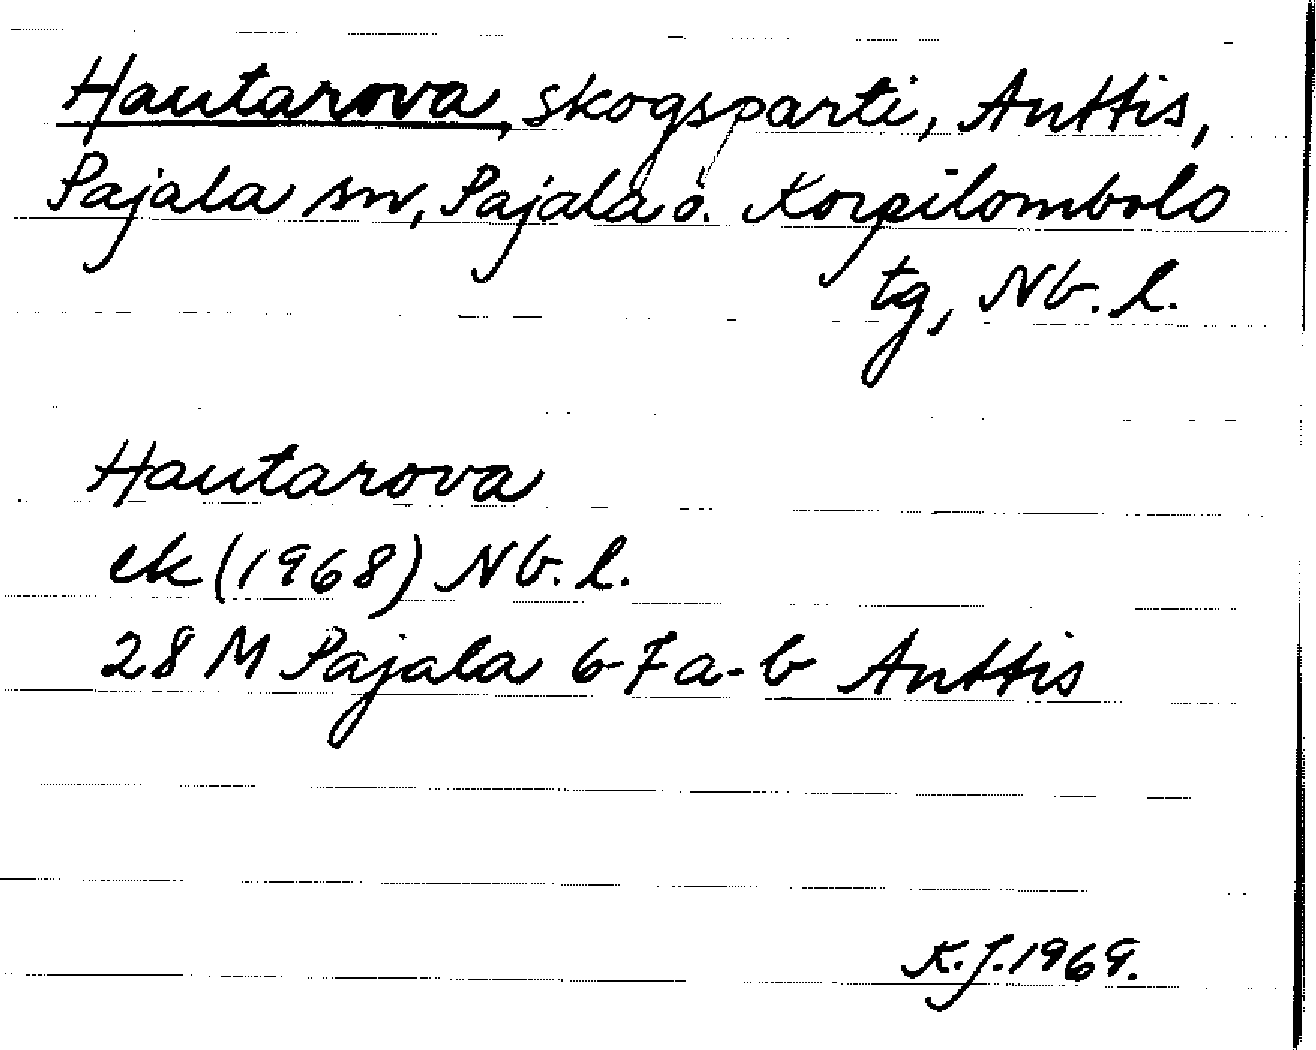 Hautarova, skogsparti, Anttis,
Pajala sn, Pajala o. Korpilombolo
tg, Nb. l.
Hautarova
ek (1968) Nb. l.
28 M Pajala 6-7 a-b Anttis
K. J. 1969.